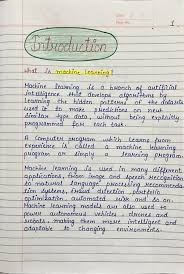 Introduction
What is machine learning?
Machine learning is a branch of artificial
intelligence that develops algorithms by
learning the hidden patterns of the datasets
used it to make predictions on new
similar type data, without being explicitly
programmed for each task.
A Computer program which learns from
experience is called a machine learning
program or simply a learning program.
Machine learning is used in many different
applications, from image and speech recognition
to natural language processing, recommenda-
tion systems, fraud detection, portfolio
optimization, automated task and so on.
Machine learning models are also used to
power autonomous vehicles, drones and
robots, making them more intelligent and
adaptable to changing environments.